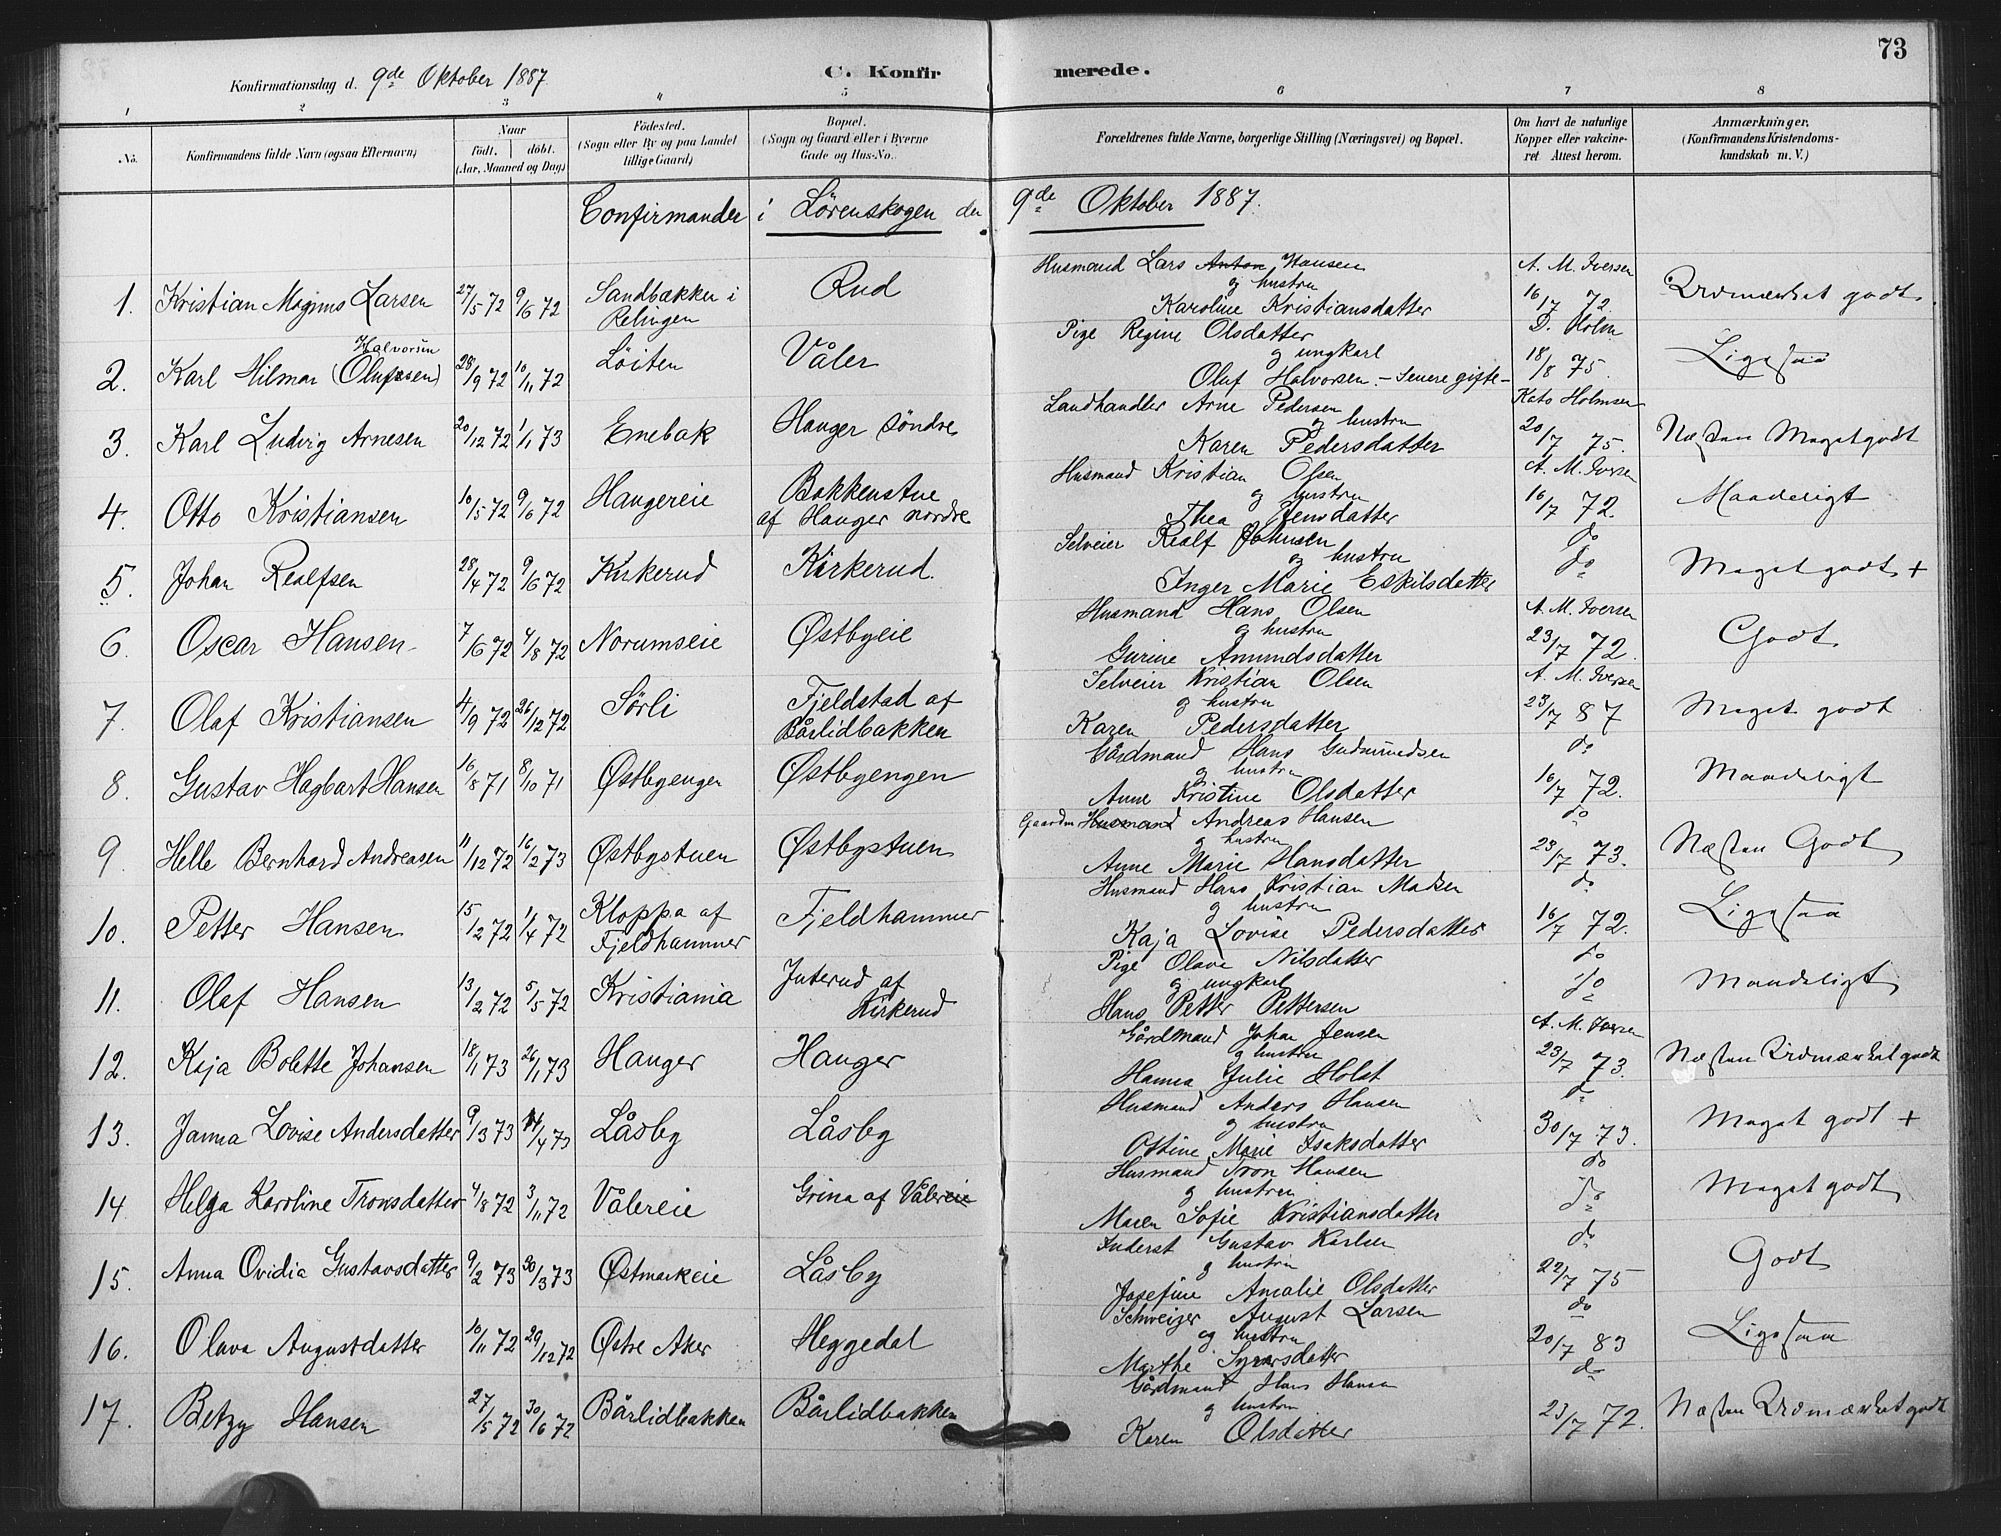 73
Konfirmationsdag d. 9de Oktober 1887. C. Konfirmerede.
1 2 3 4 5 6 7 8
No. Konfirmandens fulde Navn (ogsaa Efternavn) Naar født. døbt. (Aar, Maaned og Dag) Fødested. (Sogn eller By og paa Landet tillige Gaard) Bopæl. (Sogn og Gaard eller i Byerne Gade og Hus-No. Forældrenes fulde Navne, borgerlige Stilling (Næringsvei) og Bopæl. Om havt de naturlige Kopper eller vakcineret Attest herom. Anmærkninger. (Konfirmandens Kristendomskundskab m. V.)
Confirmander i Lørenskogen den 9de Oktober 1887.
1. Kristian Magnus Larsen 27/5 72 9/6 72 Sandbækken i Relingen Rud Husmand Lars Anton Hansen og hustru Karoline Kristiansdatter A. M. Iversen 16/7 72. Udmærket godt.
2. Karl Hilmar (Olufsen) Halvorsen 28/9 72 10/11 72 Løiten Våler Pige Regine Olsdatter og ungkarl Oluf Halvorsen. - Senere gifte - D. Holm 18/8 75. Ligesaa
3. Karl Ludvig Arnesen 20/12 72 1/1 73 Enebak Hauger søndre Landhandler Arne Pedersen og hustru Karen Pedersdatter Kato Holmsen 20/7 75. Næsten Meget godt
4. Otto Kristiansen 10/5 72 9/6 72 Haugereie Bakkenstue af Hauger nordre Husmand Kristian Olsen og hustru Thea Jensdatter A. M. Iversen 16/7 72. Maadeligt
5. Johan Realfsen 28/4 72 9/6 72 Kirkerud Kirkerud. Selveier Realf Johnsen og hustru Inger Marie Eskilsdatter do do Meget godt +
6. Oscar Hansen 7/6 72 4/8 72 Norumseie Østbyeie Husmand Hans Olsen og hustru Gurine Amundsdatter A. M. Iversen 23/7 72. Godt
7. Olaf Kristiansen 4/9 72 26/12 72 Sørli Fjeldstad af Bårlidbakken Selveier Kristian Olsen og hustru Karen Pedersdatter A. M. Iversen 23/7 87 Meget godt
8. Gustav Hagbart Hansen 16/8 71 8/10 71 Østbyengen Østbyengen Gårdmand Hans Gudmundsen og hustru Anne Kristine Olsdatter do 16/7 72. Maadeligt
9. Helle Bernhard Andreasen 11/12 72 16/2 73 Østbystuen Østbystuen Gaardm Husmand Andreas Hansen og hustru Anne Marie Hansdatter do 23/7 73. Næsten Godt
10. Petter Hansen 15/2 72 1/4 72 Kloppa af Fjeldhammer Fjeldhammer Husmand Hans Kristian Madsen og hustru Kaja Lovise Pedersdatter do 16/7 72. Ligesaa
11. Olaf Hansen 13/2 72 5/5 72 Kristiania Juterud af Kirkerud Pige Olave Nilsdatter og ungkarl Hans Petter Pettersen do do Maadeligt
12. Kaja Bolette Johansen 18/1 73 26/1 73 Hauger Hauger Gårdmand Johan Jensen og hustru Hanna Julie Holst A. M. Iversen 23/7 73. Næsten Udmærket godt
13. Janna Lovise Andersdatter 9/3 73 14/4 73 Låsby Låsby Husmand Anders Hansen og hustru Ottine Marie Isaksdatter do 30/7 73. Meget godt +
14 Helga Karoline Tronsdatter 4/8 72 3/11 72 Vålereie Grina af Vålereie Husmand Tron Hansen og hustru Maren Sofie Kristiansdatter do do Meget godt
15. Anna Ovidia Gustavsdatter 9/2 73 30/3 73 Østmarkeie Låsby Inderst Gustav Karlsen og hustru Josefine Amalie Olsdatter do 22/7 75 Godt
16. Olava Augustdatter 10/11 72 29/12 72 Østre Aker Heggedal Schweizer August Larsen og hustru Marthe Syversdatter do 20/7 83 Ligesaa
17. Betzy Hansen 27/5 72 30/6 72 Bårlidbakken Bårlidbakken Gårdmand Hans Hansen og hustru Karen Olsdatter do 23/7 72. Næsten Udmærket godt